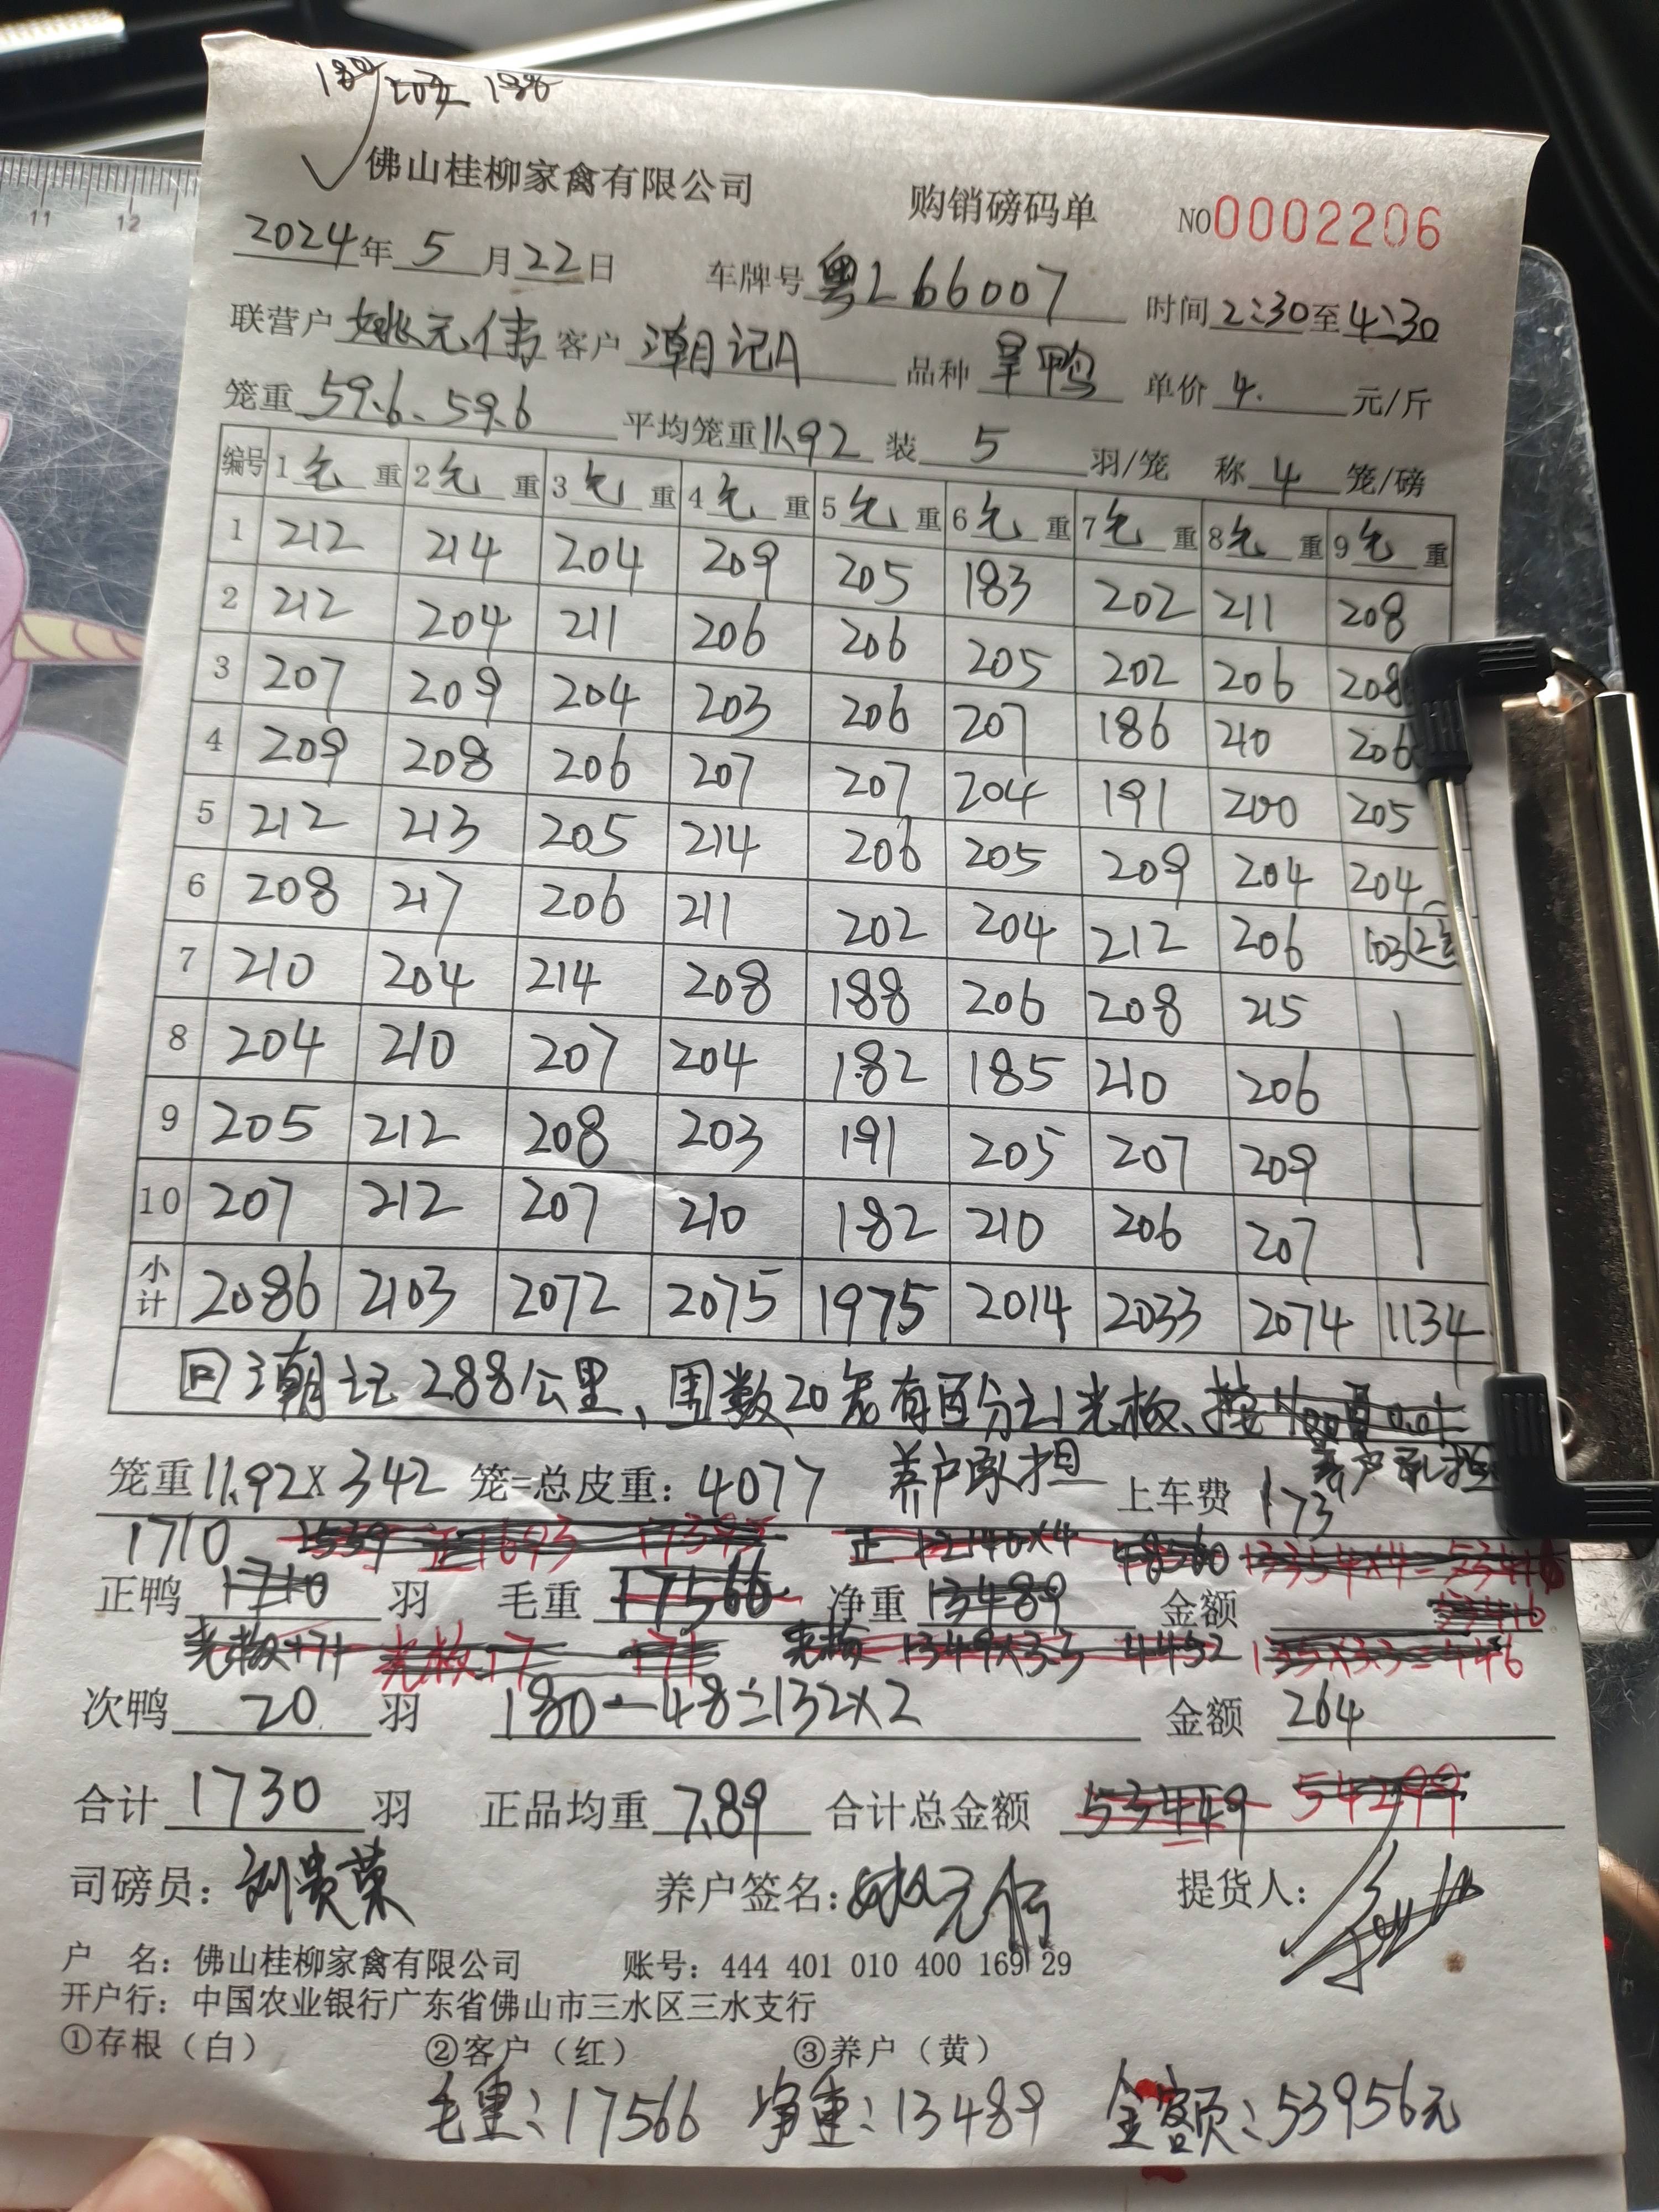 佛山桂柳家禽有限公司 购销磅码单 NO0002206
2024年5月22日 车牌号粤L66007 时间2:30至4:30
联营户姚元伟 客户潮记A 品种旱鸭 单价4.元/斤
笼重59.6、59.6 平均笼重11.92 装5羽/笼 称4笼/磅
编号 1毛重 2毛重 3毛重 4毛重 5毛重 6毛重 7毛重 8毛重 9毛重
1 212 214 204 209 205 183 202 211 208
2 212 204 211 206 206 205 202 206 208
3 207 209 204 203 206 207 186 210 206
4 209 208 206 207 207 204 191 200 205
5 212 213 205 214 206 205 209 204 204
6 208 217 206 211 202 204 212 206 103(2
7 210 204 214 208 188 206 208 215
8 204 210 207 204 182 185 210 206
9 205 212 208 203 191 205 207 209
10 207 212 207 210 182 210 206 207
小计 2086 2103 2072 2075 1975 2014 2033 2074 1134
回潮记288公里、周数20 有百分之1光板、
笼重11.92X342笼=总皮重：4077 养户承担 上车费173 养户承担
1710 1539 正1693 17393 正12140X4 48560 13354X4=53416
正鸭1710羽 毛重17566 净重13489 金额53416
光板171 光板17 171 光板1349X33 4452 135X33=446
次鸭20羽 180-48=132X2 金额264
合计1730羽 正品均重7.89 合计总金额53449 54299
司磅员：刘贵荣 养户签名：姚元伟 提货人：
户 名：佛山桂柳家禽有限公司 账号：444 401 010 400 169 29
开户行：中国农业银行广东省佛山市三水区三水支行
①存根（白） ②客户（红） ③养户（黄）
毛重：17566 净重：13489 金额：53956元